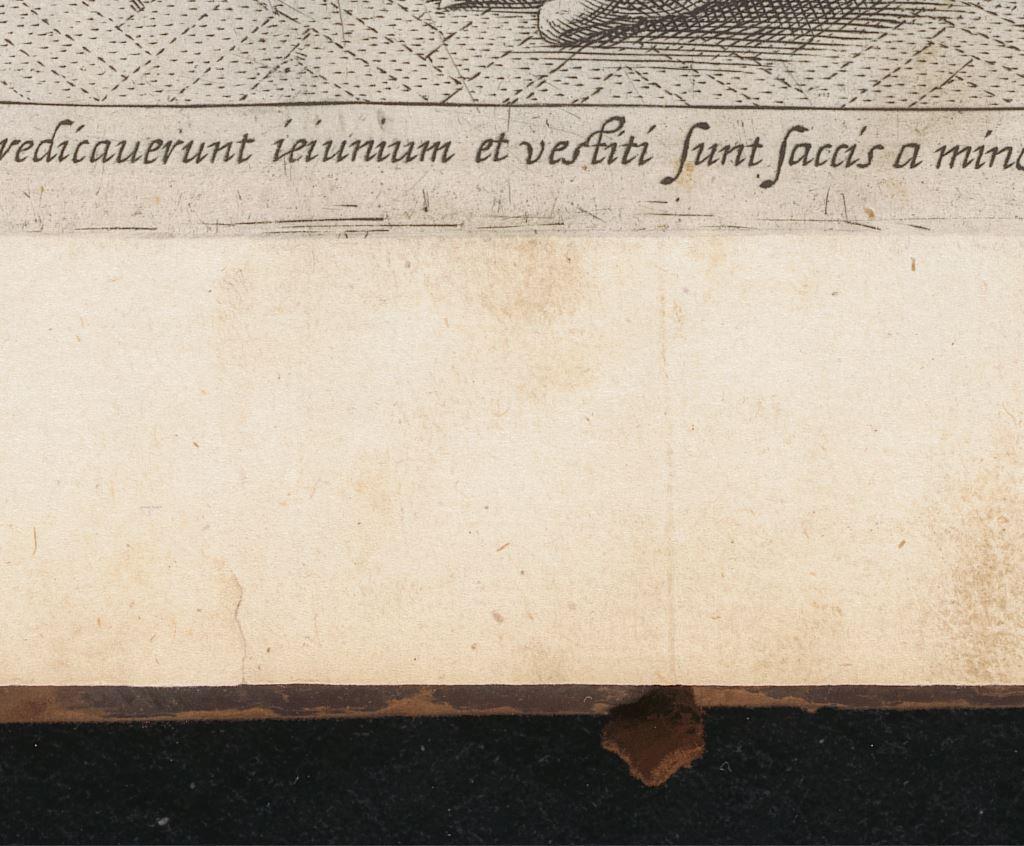 redicauerunt ieiunium et vestiti sunt saccis a mino